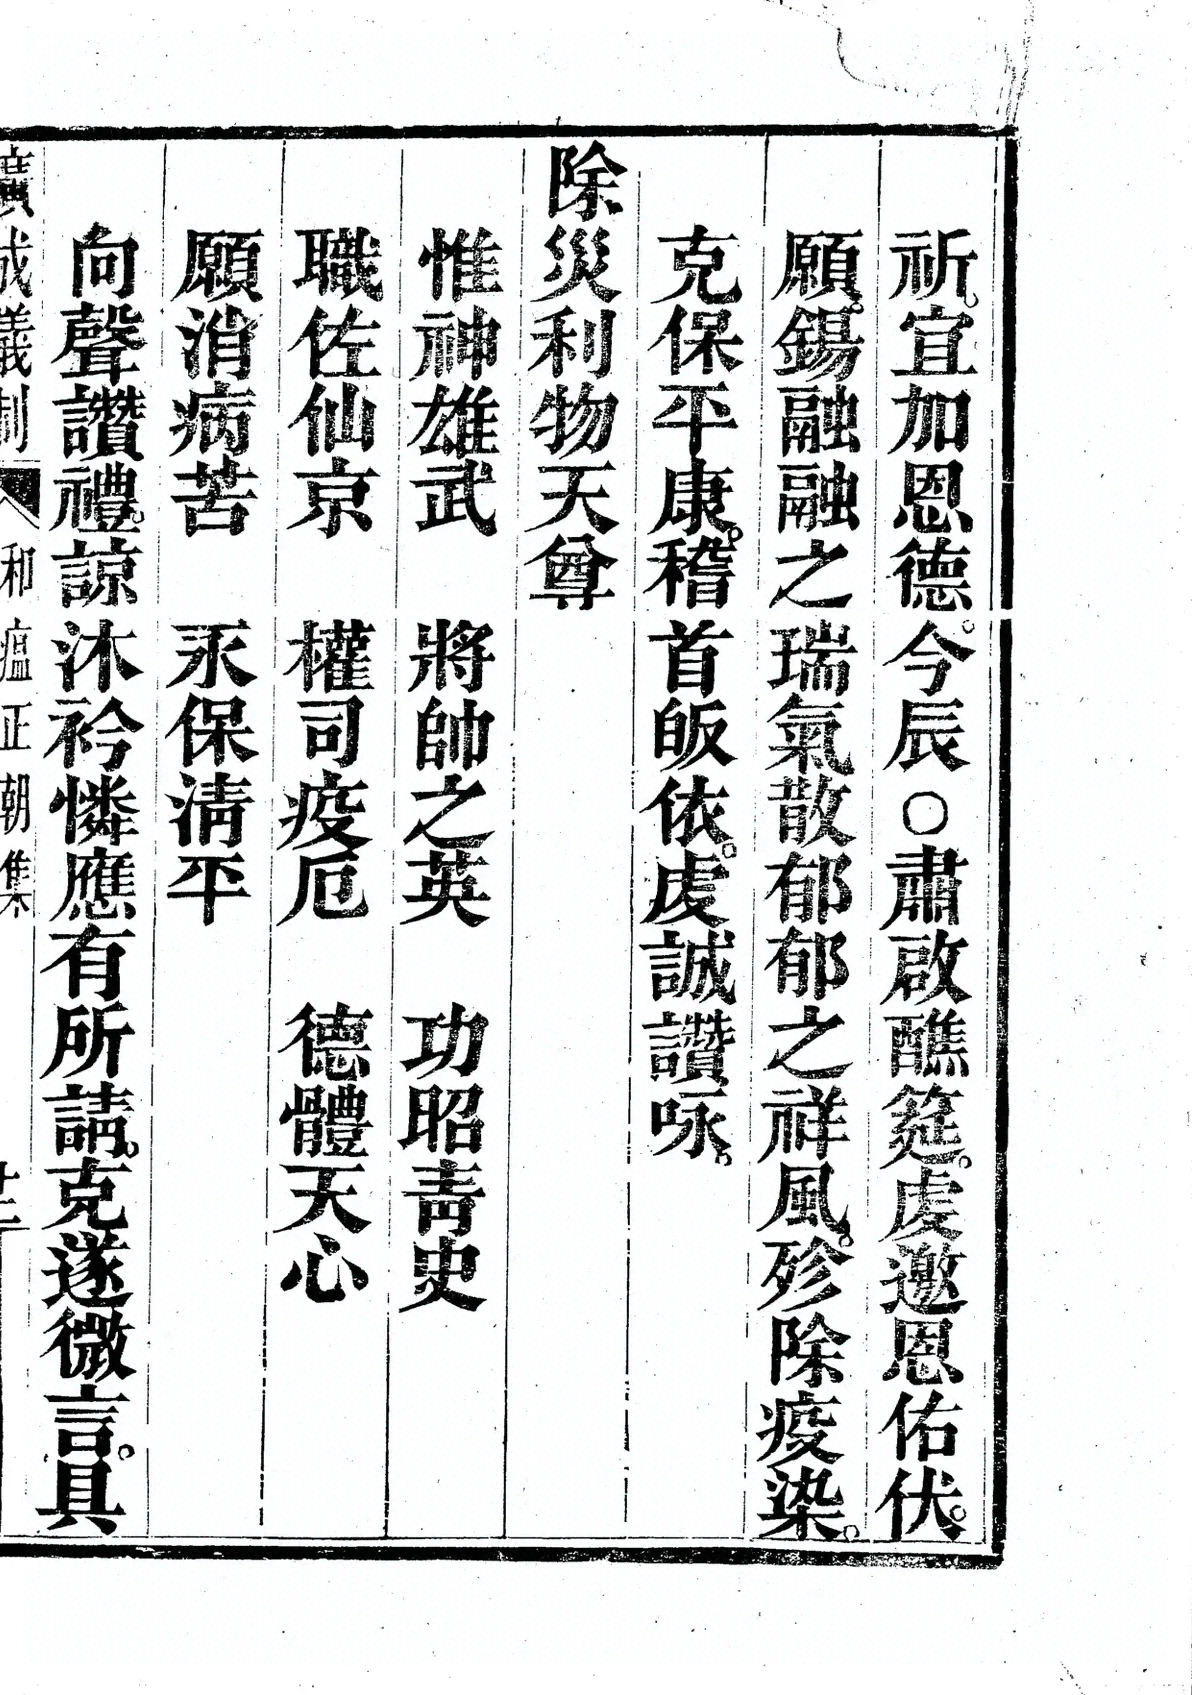 祈。宜加恩德。今辰○肅啟醮筵。虔邀恩佑。伏
願。錫融融之瑞氣散郁郁之祥風。殄除疫染。
克保平康。稽首皈依。虔誠讚咏。
除災利物天尊
惟神雄武　將帥之英　功昭靑史
職佐仙京　權司疫厄　德體天心
願消病苦　永保淸平
向聲讚禮。諒沐衿憐應有所請。克遂微言。具
廣成儀制　和瘟正朝集　廿二